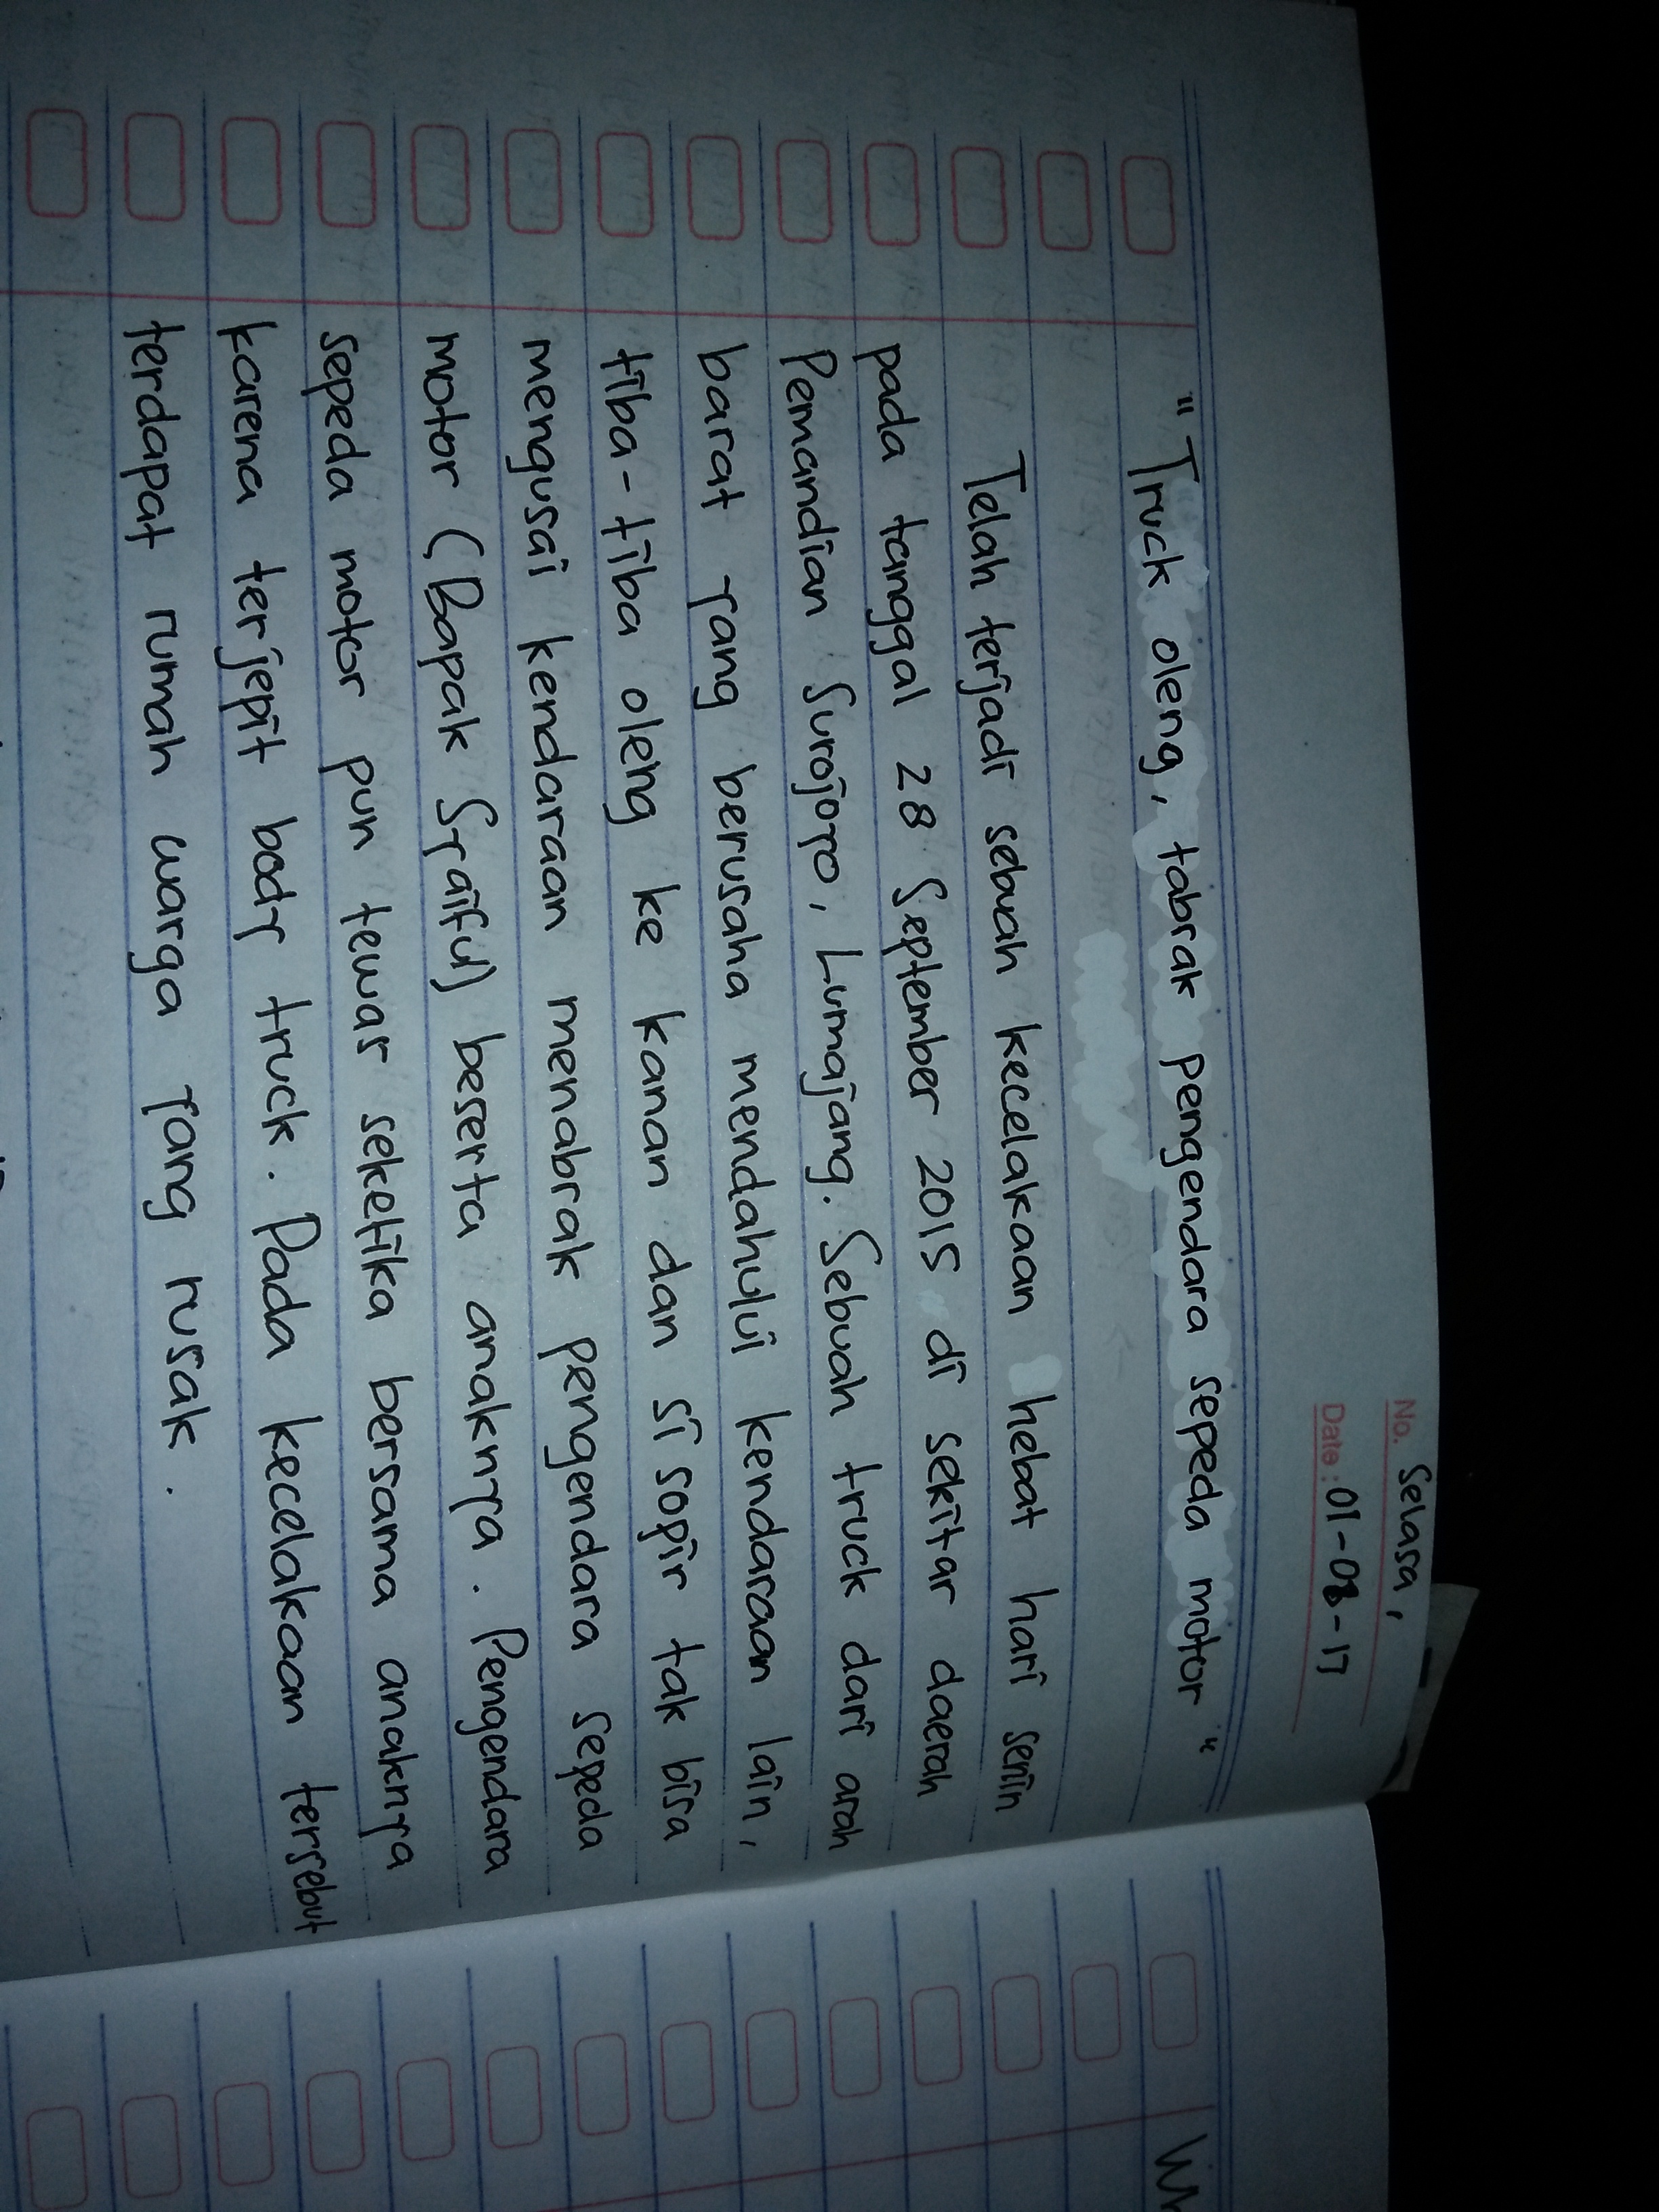 No. Selasa,
Date: 01-08-17
"Truck oleng, tabrak pengendara sepeda motor"
Telah terjadi sebuah kecelakaan hebat hari senin
pada tanggal 28 September 2015 di sekitar daerah
Pemandian Surojoyo, Lumajang. Sebuah truck dari arah
barat yang berusaha mendahului kendaraan lain,
tiba-tiba oleng ke kanan dan si sopir tak bisa
mengusai kendaraan menabrak pengendara sepeda
motor (Bapak Syaiful) beserta anaknya. Pengendara
sepeda motor pun tewas seketika bersama anaknya
karena terjepit body truck. Pada kecelakaan tersebut
terdapat rumah warga yang rusak.